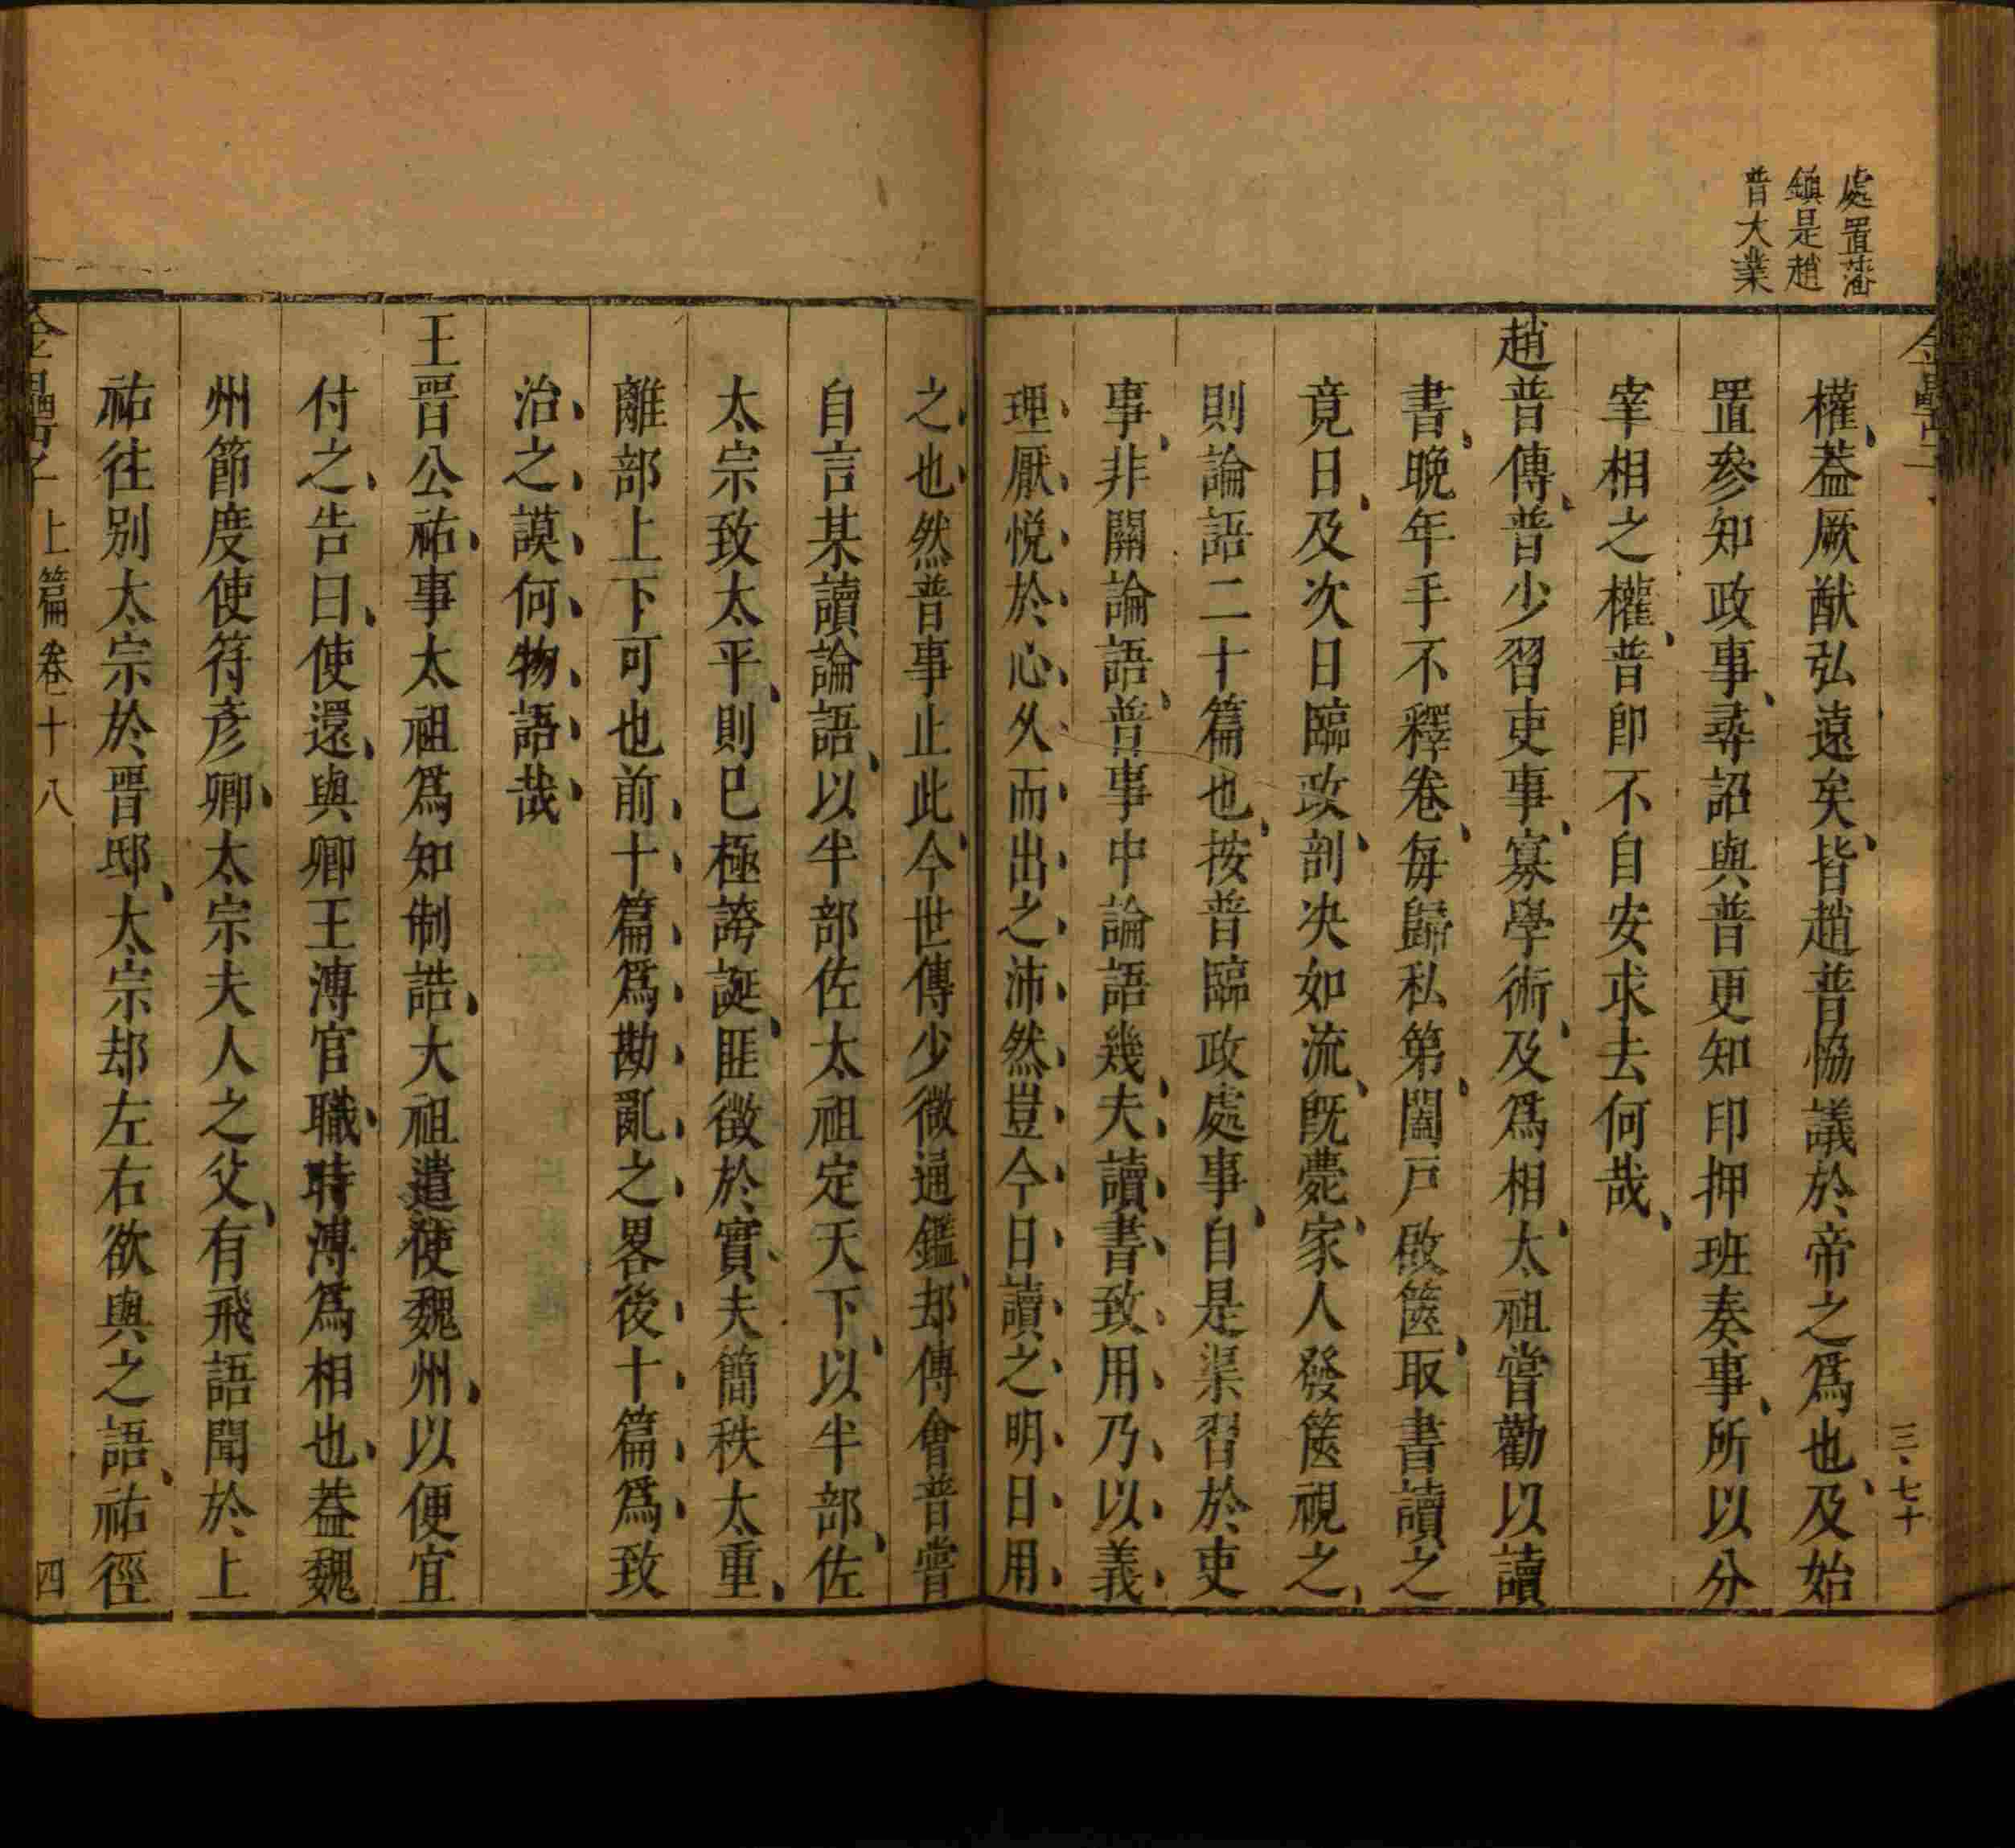 處置藩
鎮是趙
普大業
三七十
權蓋厥猷弘遠矣皆趙普恊議於帝之爲也及始
置參知政事尋詔與普更知印押班奏事所以分
宰相之權普卽不自安求去何哉
趙普傳普少習吏事寡學術及爲相太祖嘗勸以讀
書晚年手不釋卷每歸私第闔戸啟篋取書讀之
竟日及次日臨政剖决如流旣薨家人發篋視之
則論語二十篇也按普臨政處事自是渠習於吏
事非關論語普事中論語幾夫讀書致用乃以義
理厭悅於心久而出之沛然豈今日讀之明日用
之也然普事止此今世傳少微通鑑却傳會普嘗
自言某讀論語以半部佐太祖定天下以半部佐
太宗致太平則已極誇誕匪徵於實夫簡秩太重
離部上下可也前十篇爲勘亂之畧後十篇爲致
治之謨何物語哉
王晋公祐事太祖爲知制誥大祖遣使魏州以便宜
付之告曰使還與卿王溥官職時溥爲相也葢魏
州節度使符彦卿太宗夫人之父有飛語聞於上
祐往别太宗於晋邸太宗却左右欲與之語祐徑
上篇卷十八
四